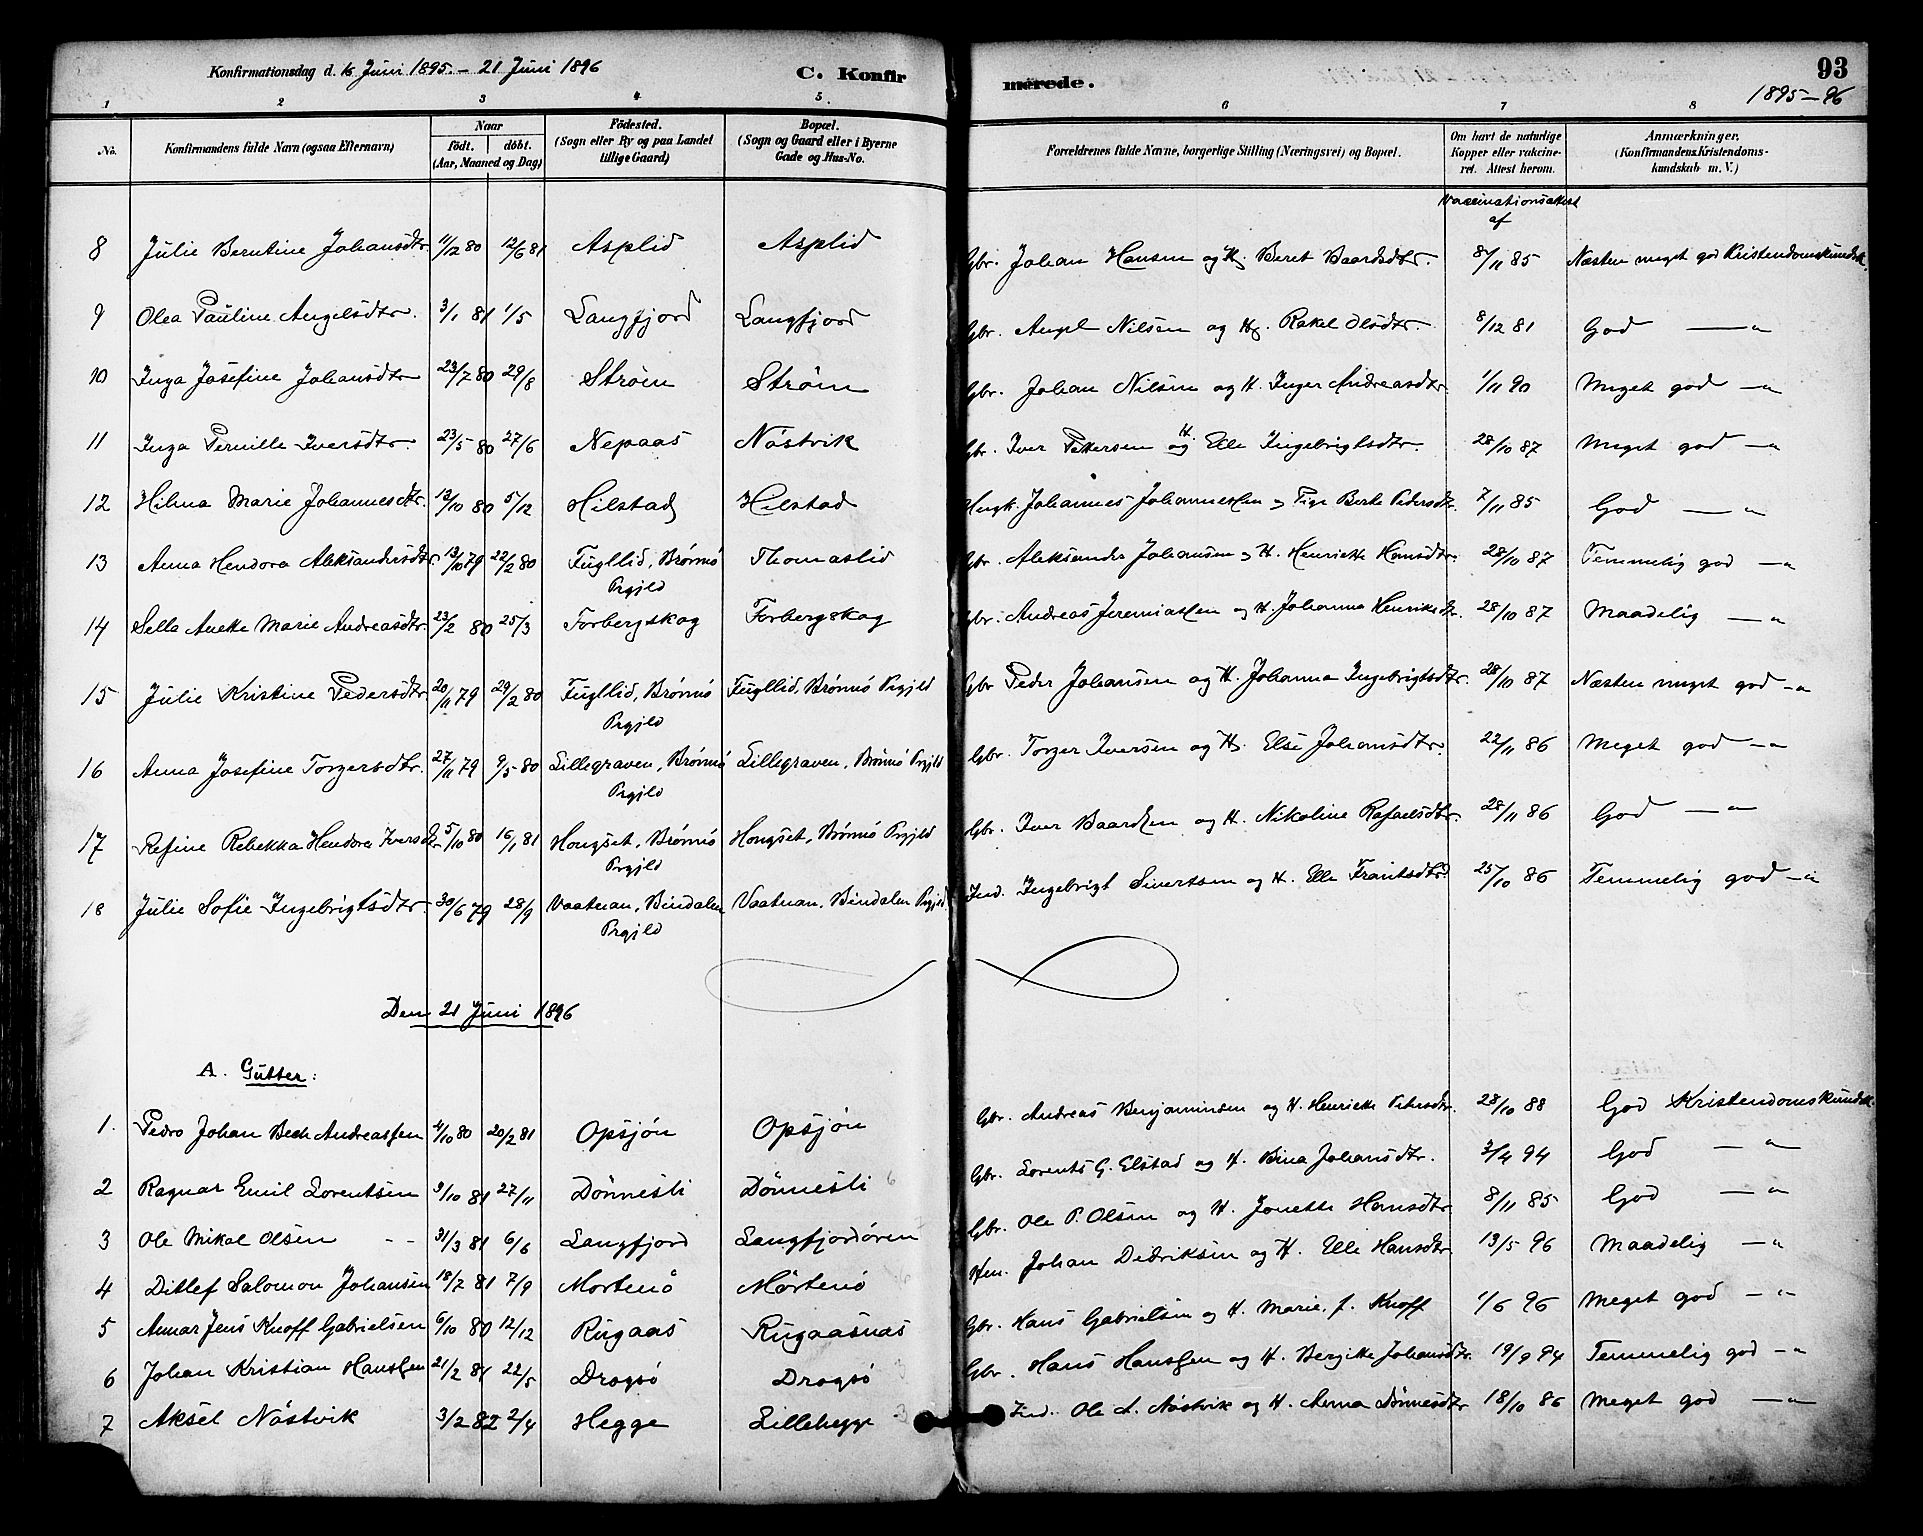 Konfirmationsdag d. 16 Juni 1895. – 21 Juni 1896 C. Konfirmerede. 93
1895–96
1 2 3 4 5. 6 7 8
No. Konfirmandens fulde Navn (ogsaa Efternavn) Naar Født. døbt. (Aar, Maaned og Dag) Fødested. (Sogn eller By og paa Landet tillige Gaard) Bopæl. (Sogn og Gaard eller i Byerne Gade og Hus-No. Forældrenes fulde Navne, borgerlige Stilling (Næringsvei) og Bopæl. Om havt de naturlige Kopper eller vakcineret. Attest herom. Anmærkninger. (Konfirmandens Kristendomskundskab m. V.)
Vaccinationsattest af
8 Julie Berntine Johansdtr. 11/2 80 12/6 81 Asplid Asplid Gbr. Johan Hansen og H. Beret Baardsdtr. 8/11 85 Næsten meget god Kristendomskundsk.
9 Olea Pauline Angelsdtr. 3/1 81 1/5 Langfjord Langfjord Gbr. Angel Nilsen og H. Rakel Olsdtr. 8/12 81 God — "
10 Inga Josefine Johansdtr 23/7 80 29/8 Strøm Strøm Gbr. Johan Nilsen og H. Inger Andreasdtr. 1/11 90 Meget god — "
11 Inga Pernille Iversdtr. 23/5 80 27/6 Nepaas Nøstvik Gbr. Iver Pettersen og H. Elle Ingebrigtsdtr. 28/10 87 Meget god — "
12 Hilma Marie Johannesdtr. 13/10 80 5/12 Hilstad Hilstad Johannes Johannessen Pige Berte Pedersdtr. 7/11 85 God — "
13 Anna Hendora Aleksandersdtr. 13/10 79 22/2 80 Fugllid, Brønnø Prgjld Thomaslid Gbr. Aleksander Johansen og H. Henriette Hansdtr. 28/10 87 Temmelig god — "
14 Sella Anette Marie Andreasdtr. 23/2 80 25/3 Forbergskog Forbergskog Gbr. Andreas Jeremiassen og H. Johanna Henriksdtr. 28/10 87 Maadelig — "
15 Julie Kristine Pedersdtr. 20/11 79 29/2 80 Fugllid, Brønnø Prgjld Fugllid, Brønnø Prgjld Gbr Peder Johansen og H. Johanna Ingebrigtsdtr. 28/10 87 Næsten meget god — "
16 Anna Josefine Torgersdtr. 27/11 79 9/5 80 Lillegraven, Brønnø Prgjld Lillegraven, Brønnø Prgjld Gbr. Torger Iversen og H. Else Johansdtr. 22/11 86 Meget god — "
17 Refine Rebekka Hendora Iversdtr. 5/10 80 16/1 81 Hongset, Brønnø Prgjld Hongset, Brønnø Prgjld Gbr. Iver Baardsen og H. Nikoline Rafaelsdtr. 28/11 86 God — "
18 Julie Sofie Ingebrigtsdtr. 30/6 79 28/9 Vaatnan, Bindalen Prgjld Vaatnan, Bindalen Prgjld. Ind. Ingebrigt Sivertsen og H. Elle Frantsdtr. 25/10 86 Temmelig god — "
Den 21 Juni 1896
A. Gutter:
1. Pedro Johan Bech Andreassen 4/10 80 20/2 81 Opsjøn Opsjøn Gbr. Andreas Benjaminsen og H. Henriette Petersdtr. 28/10 88 God Kristendomskundsk.
2 Ragnar Emil Lorentsen 9/10 81 27/11 Dønnesli Dønnesli 6 Gbr. Lorents G. Elstad og H. Bina Johansdtr. 3/4 94 God — "
3 Ole Mikal Olsen – – 31/3 81 6/6 Langfjord Langfjordøren Gbr. Ole P. Olsen og H. Jonette Hansdtr. 8/11 85 God — "
4 Ditlef Salomon Johansen 18/7 81 7/9 Mortenø Mortenø Johan Didriksen og H. Elle Hansdtr. 13/5 96 Maadelig — "
5 Annar Jens Knoff Gabrielsen 6/10 80 12/12 Rugaas Rugaasnas Gbr. Hans Gabrielsen og H. Marie f. Knoff 1/6 96 Meget god — "
6 Johan Kristian Hanssen 21/2 81 22/5 Dragsø Dragsø 3 Gbr. Hans Hanssen og H. Bergitte Johansdtr. 19/9 94 Temmelig god — "
7 Aksel Nøstvik 3/2 82 2/4 Hegge Lillehegge 3 Ind. Ole A. Nøstvik og H. Anna Dønnesdtr 18/10 86 Meget god — "